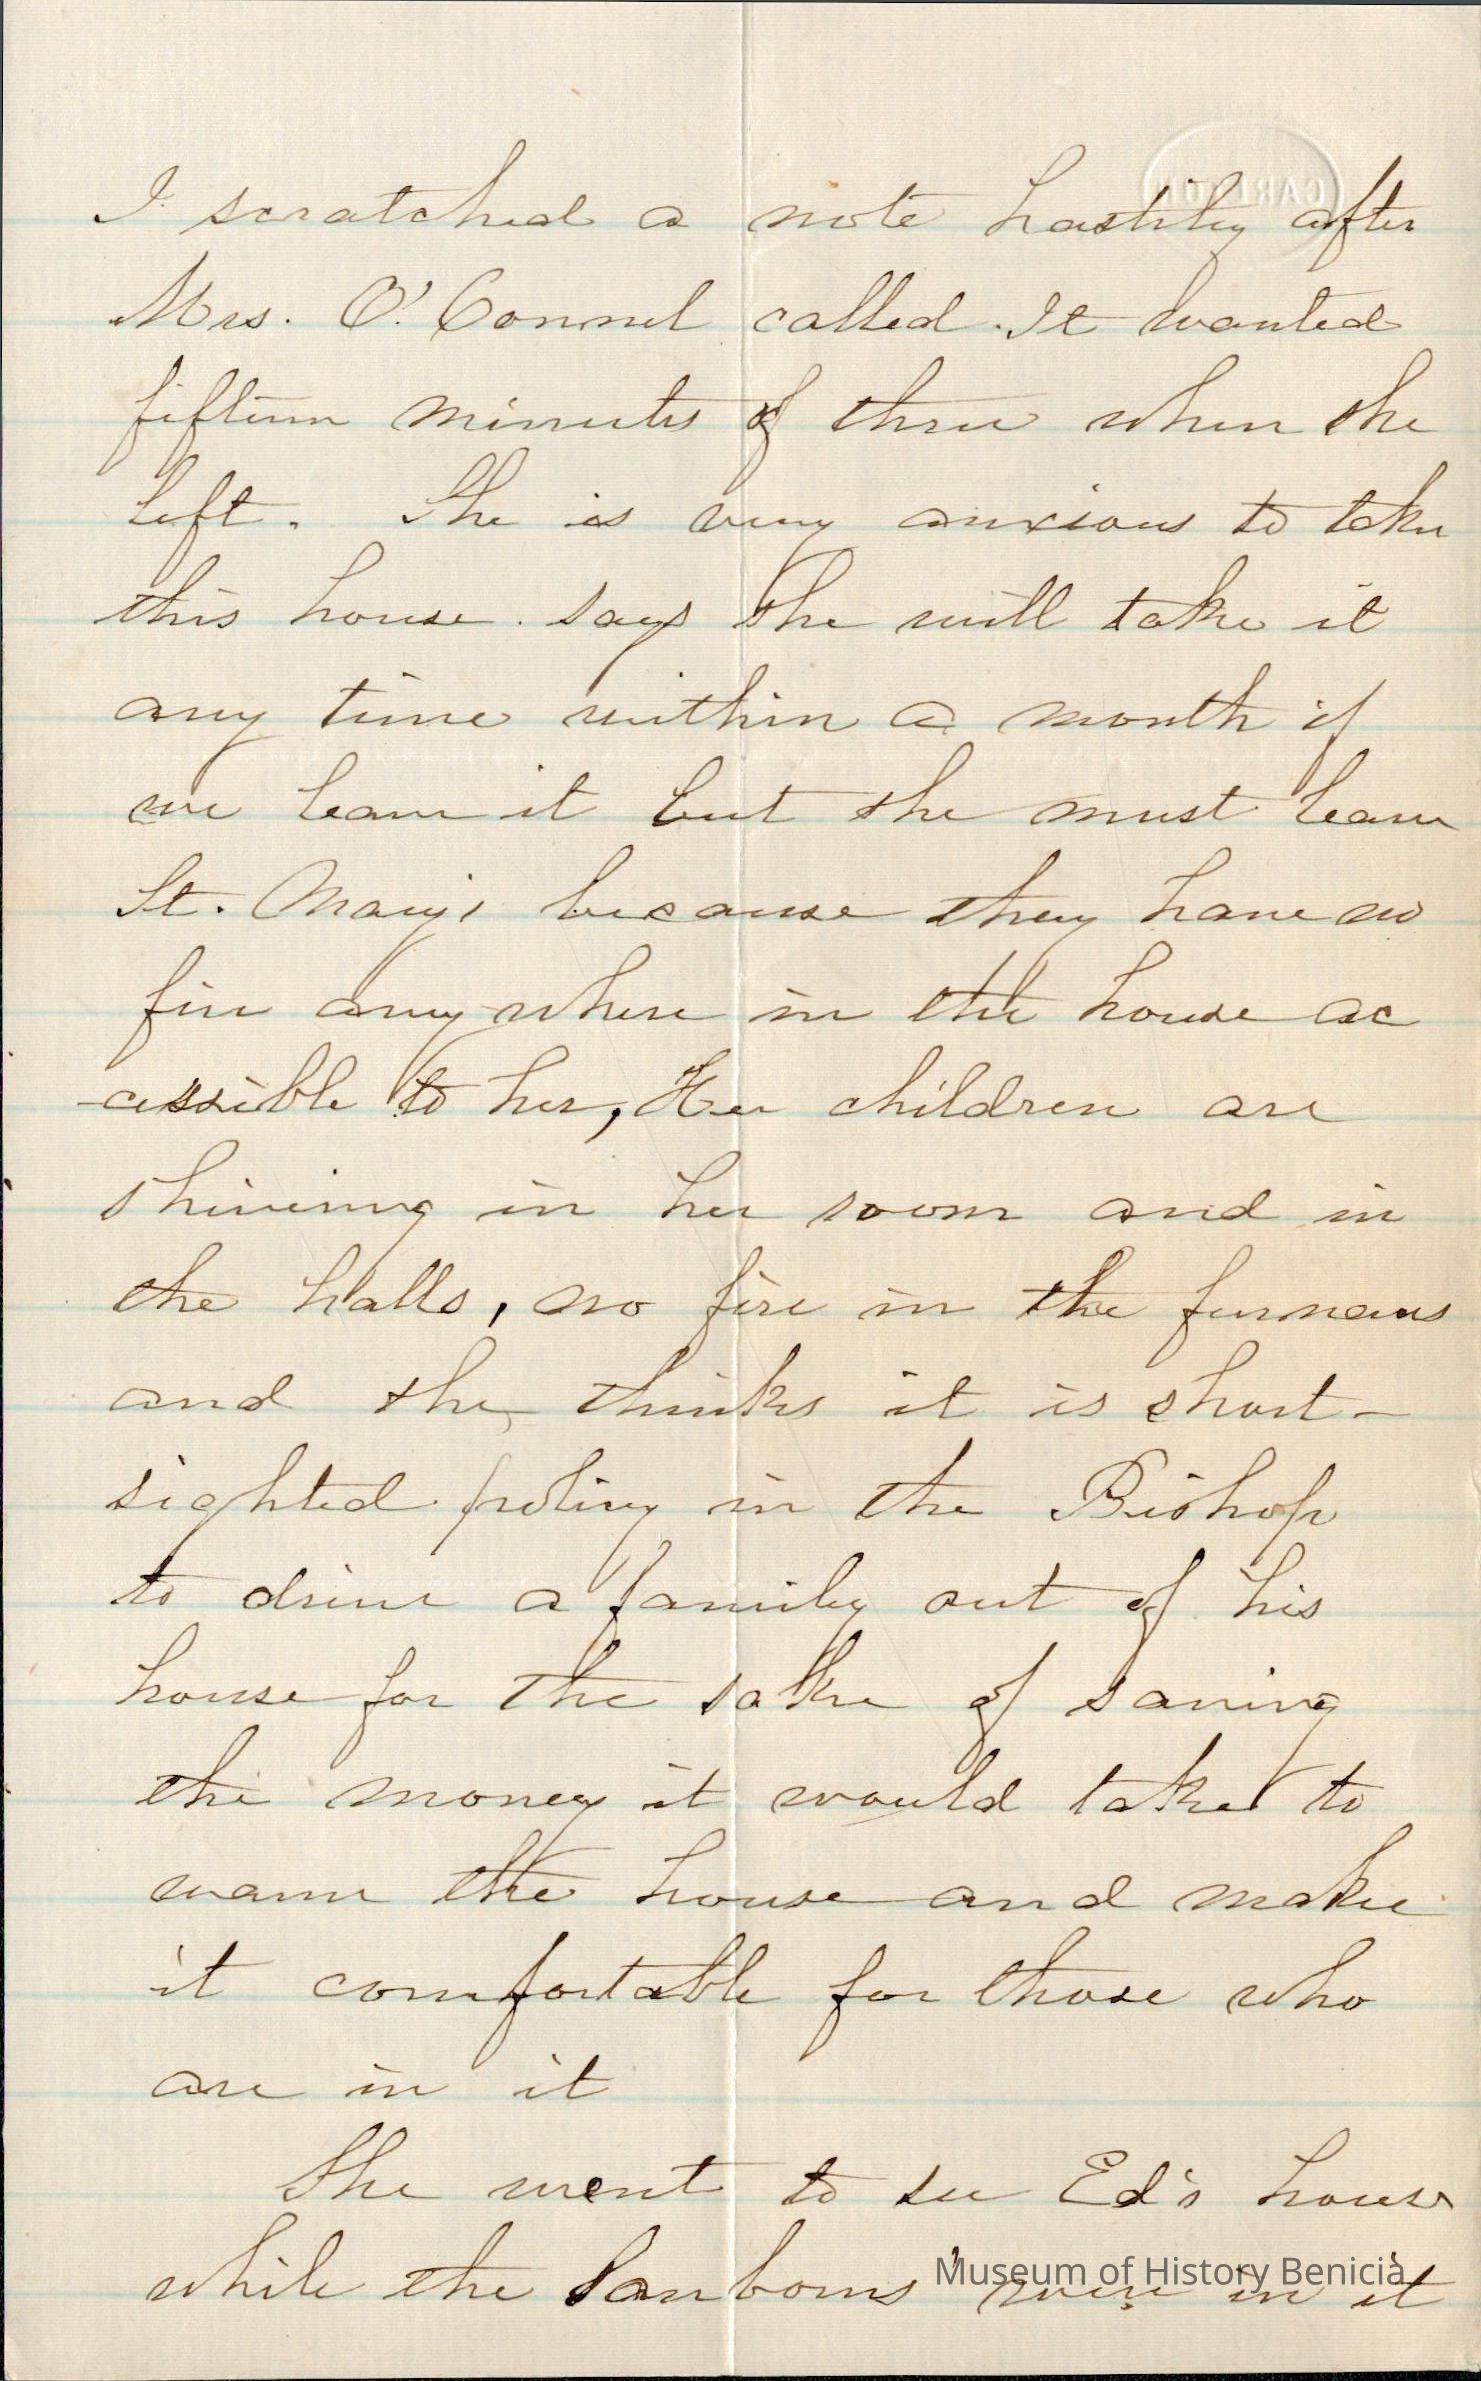 CARLTON
I scratched a note hastily after
Mrs. O'Connel called. It wanted
fifteen minutes of three when she
left. She is very anxious to take
this house. says she will take it
any time within a month if
we leave it but she must leave
St. Mary's because they have no
fire anywhere in the house ac
-cessible to her, Her children are
shivering in her room and in
the halls, no fire in the furnaces
and she thinks it is short-
sighted policy in the Bishop
to drive a family out of his
house for the sake of saving
the money it would take to
warm the house and make
it comfortable for those who
are in it
She went to see Ed's house
while the Sanborns' were in it
Museum of History Benicia